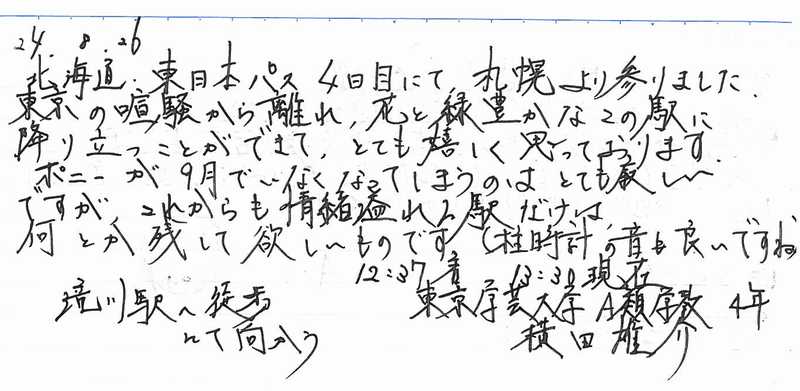 24.8.26
北海道.東日本パス 4日目にて,札幌より参りました.
東京の喧騒から離れ,花と緑豊かなこの駅に
降り立つことができて,とても嬉しく思っております.
ポニーが9月でいなくなってしまうのはとても寂しい
ですが,これからも情緒溢れる駅だけは,
何とか残して欲しいものです (柱時計の音も良いですね
12:37着 13:30現在
滝川駅へ徒歩 東京学芸大学A類学教 4年
にて向かう 横田雄介